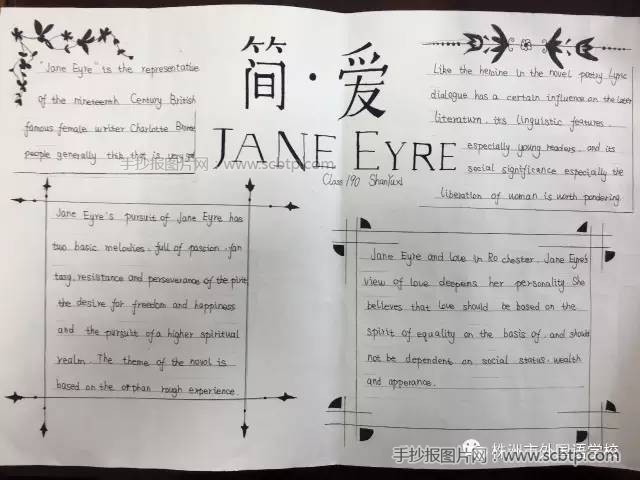 简·爱
JANE EYRE
Class 190 ShanYuxi
"Jane Eyre" is the representative
of the nineteenth Century British
famous female writer Charlotte
people generally that is
Like the heroine in the novel poetry Lyric
dialogue has a certain influence on the later
literature. its linguistic features.
especially young readers. and its
social significance especially the
liberation of woman is worth pondering.
Jane Eyre's pursuit of Jane Eyre has
two basic melodies. full of passion. fan
tasy. resistance and perseverance of the
the desire for freedom and happiness
and the pursuit of a higher spiritual
realm. The theme of the noval is
based on the orphan rough experience.
Jane Eyre and love in Ro chester. Jane Eyre's
view of love deepens her personality. She
believes that love should be based on the
spirit of equality on the basis of. and should
not be dependent on social status. wealth
and apperance.
手抄报图片网·www.scbtp.com
株洲市外国语学校
手抄报图片网·www.scbtp.com